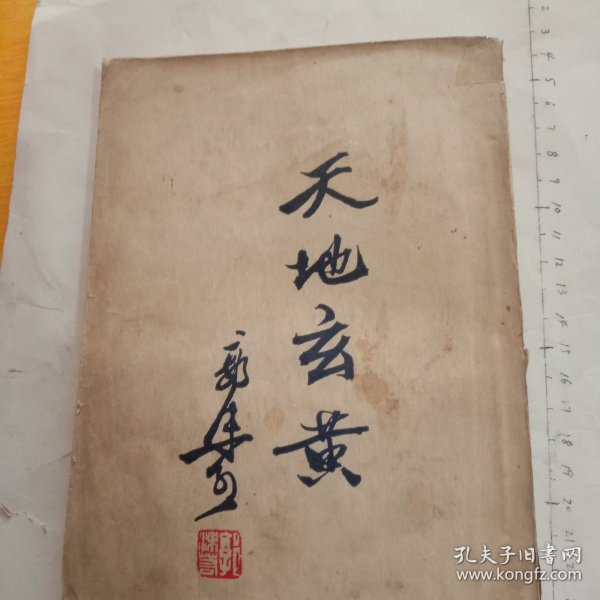 天地玄黄
郭沫若
2
3
4
5
6
7
8
9
10
11
12
13
14
15
16
17
18
19
20
21
孔夫子旧书网
www.kongfz.com